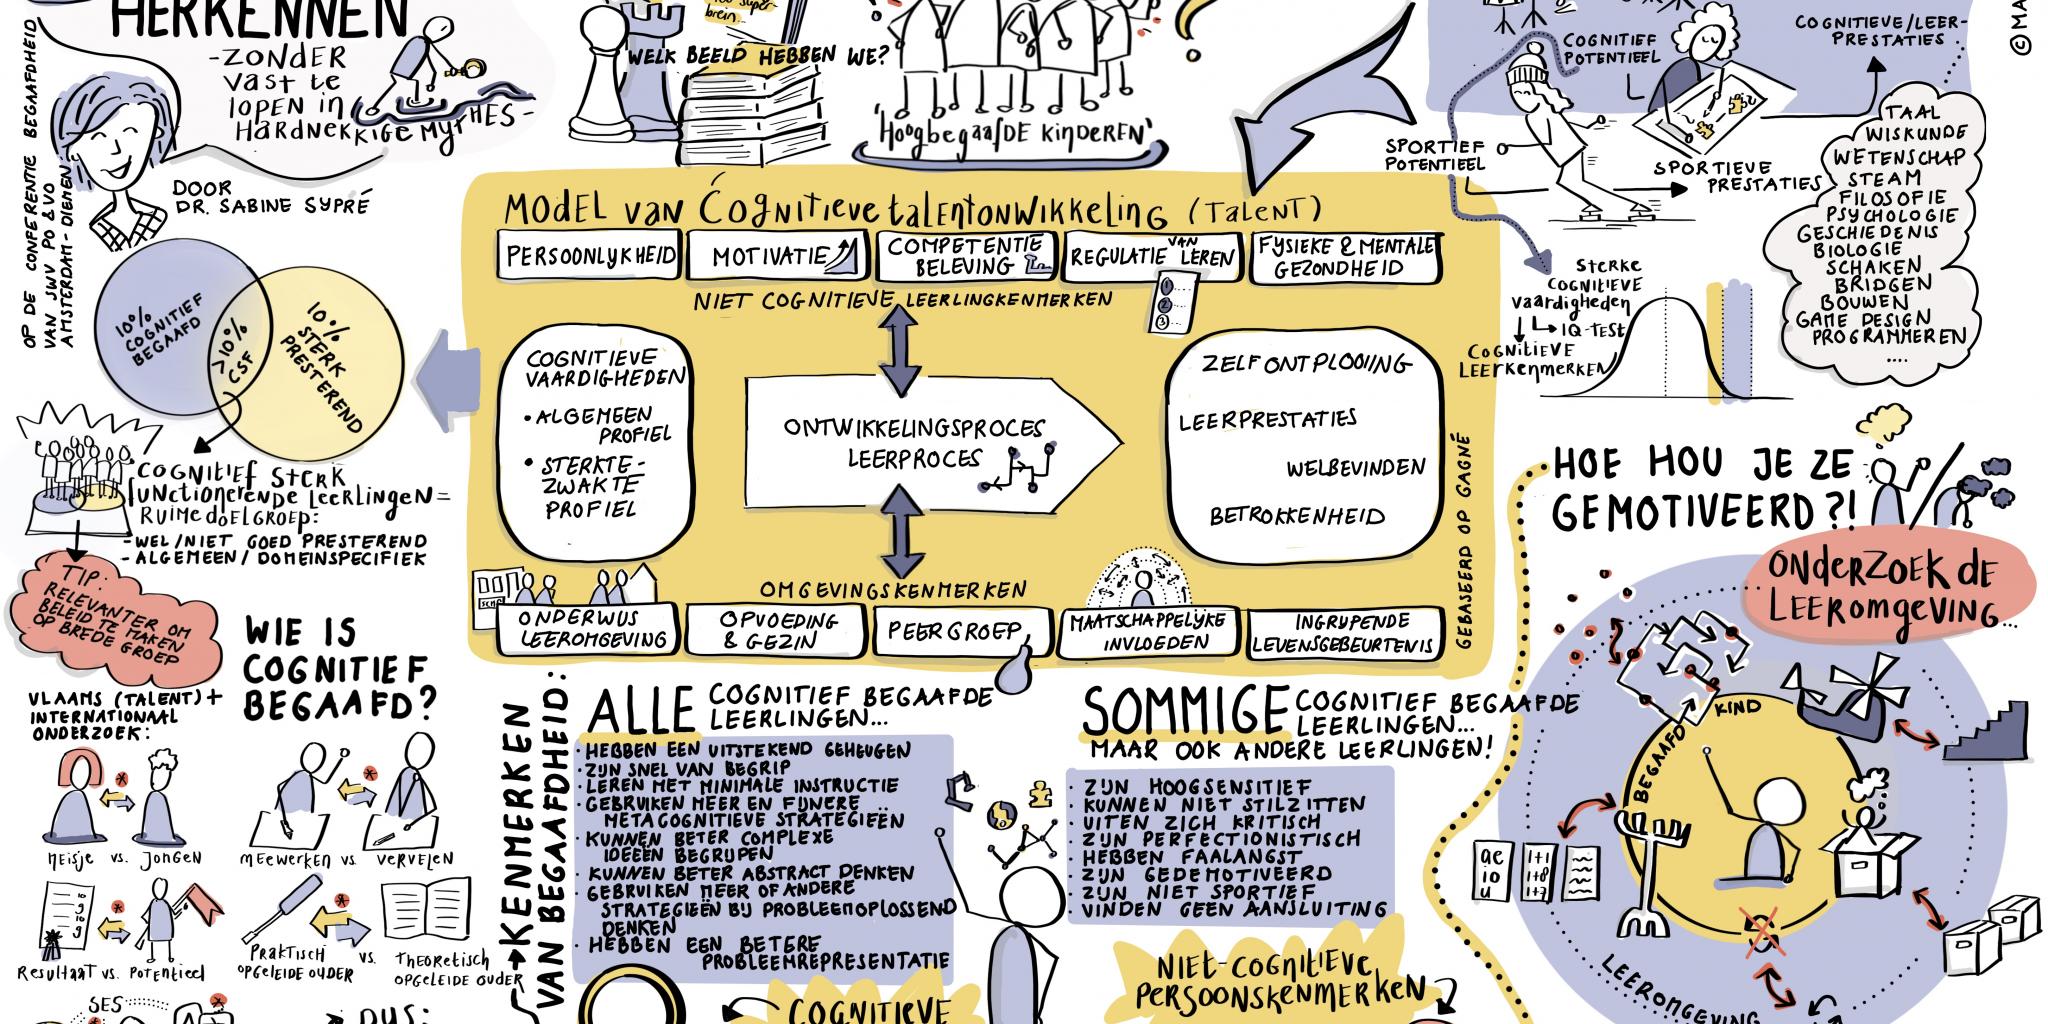 HERKENNEN
-ZONDER
vast te
lopen in
HARDNEKKIGE MYTHES-
DOOR
DR. SABINE SYPRÉ
OP DE CONFERENTIE BEGAAFDHEID
VAN SWV PO & VO
AMSTERDAM-DIEMEN
brein...
WELK BEELD HEBBEN WE?
'HoogbegaafDE KindEREN'
COGNITIEF
POTENTIEEL
COGNITIEVE/LEER-
PRESTATIES
©MA
SPORTIEF
POTENTIEEL
SPORTIEVE
PRESTATIES
TAAL
WISKUNDE
WETENSCHAP
STEAM
FILOSOFIE
PSYCHOLOGIE
GESCHIEDENIS
BIOLOGIE
SCHAKEN
BRIDGEN
BOUWEN
GAME DESIGN
PROGRAMMEREN
....
STERKE
COGNITIEVE
vaardigheden
IQ-TEST
COGNITIEVE
LEERKENMERKEN
MODEL VAN COGNITIEVE talENTONWIKKELING (TALENT)
PERSOONLYKHEID
MOTIVATIE
COMPETENTIE
BELEVING
REGULATIE VAN LEREN
FYSIEKE & MENTALE
GEZONDHEID
NIET COGNITIEVE LEERLINGKENMERKEN
1
2
3
COGNITIEVE
VAARDIGHEDEN
• ALGEMEEN
PROFIEL
• STERKTE-
ZWAKTE
PROFIEL
ONTWIKKELINGSPROCES
LEERPROCES
ZELFONTPLOOIING
LEERPRESTATIES
WELBEVINDEN
BETROKKENHEID
GEBASEERD OP GAGNÉ
OMGEVINGSKENMERKEN
ONDERWIJS
LEEROMGEVING
OPVOEDING
& GEZIN
PEERGROEP
MAATSCHAPPELYKE
INVLOEDEN
INGRIJPENDE
LEVENSGEBEURTENIS
10%
COGNITIEF
BEGAAFD
>10%
CSF
10%
STERK
PRESTEREND
COGNITIEF STERK
FUNCTIONERENDE LEERLINGEN=
RUIME DOELGROEP:
-WEL/NIET GOED PRESTEREND
-ALGEMEEN/DOMEINSPECIFIEK
TIP:
RELEVANTER OM
BELEID TE MAKEN
OP BREDE GROEP
WIE IS
COGNITIEF
BEGAAFD?
VLAAMS (TALENT) +
INTERNATIONAAL
ONDERZOEK:
MEISJE vs. JONGEN
MEEWERKEN vs. VERVELEN
RESULTAAT vs. POTENTIEEL
PRAKTISCH
OPGELEIDE OUDER
VS.
THEORETISCH
OPGELEIDE OUDER
SES
DUS:
KENMERKEN
VAN BEGAAFDHEID:
ALLE COGNITIEF BEGAAFDE
LEERLINGEN...
· HEBBEN EEN UITSTEKEND GEHEUGEN
· ZIJN SNEL VAN BEGRIP
· LEREN MET MINIMALE INSTRUCTIE
· GEBRUIKEN MEER EN FIJNERE
METACOGNITIEVE STRATEGIEËN
· KUNNEN BETER COMPLEXE
IDEEEN BEGRIJPEN
· KUNNEN BETER ABSTRACT DENKEN
· GEBRUIKEN MEER OF ANDERE
STRATEGIEËN BIJ PROBLEEMOPLOSSEND
DENKEN
· HEBBEN EEN BETERE
PROBLEEMREPRESENTATIE
COGNITIEVE
SOMMIGE COGNITIEF BEGAAFDE
LEERLINGEN...
MAAR OOK ANDERE LEERLINGEN!
· ZIJN HOOGSENSITIEF
· KUNNEN NIET STILZITTEN
· UITEN ZICH KRITISCH
· ZIJN PERFECTIONISTISCH
· HEBBEN FAALANGST
· ZIJN GEDEMOTIVEERD
· ZIJN NIET SPORTIEF
· VINDEN GEEN AANSLUITING
NIET-COGNITIEVE
PERSOONSKENMERKEN
HOE HOU JE ZE
GEMOTIVEERD?!
ONDERZOEK DE
LEEROMGEVING...
BEGAAFD KIND
ae
io
u
1+1
1+8
1+7
LEEROMGEVING